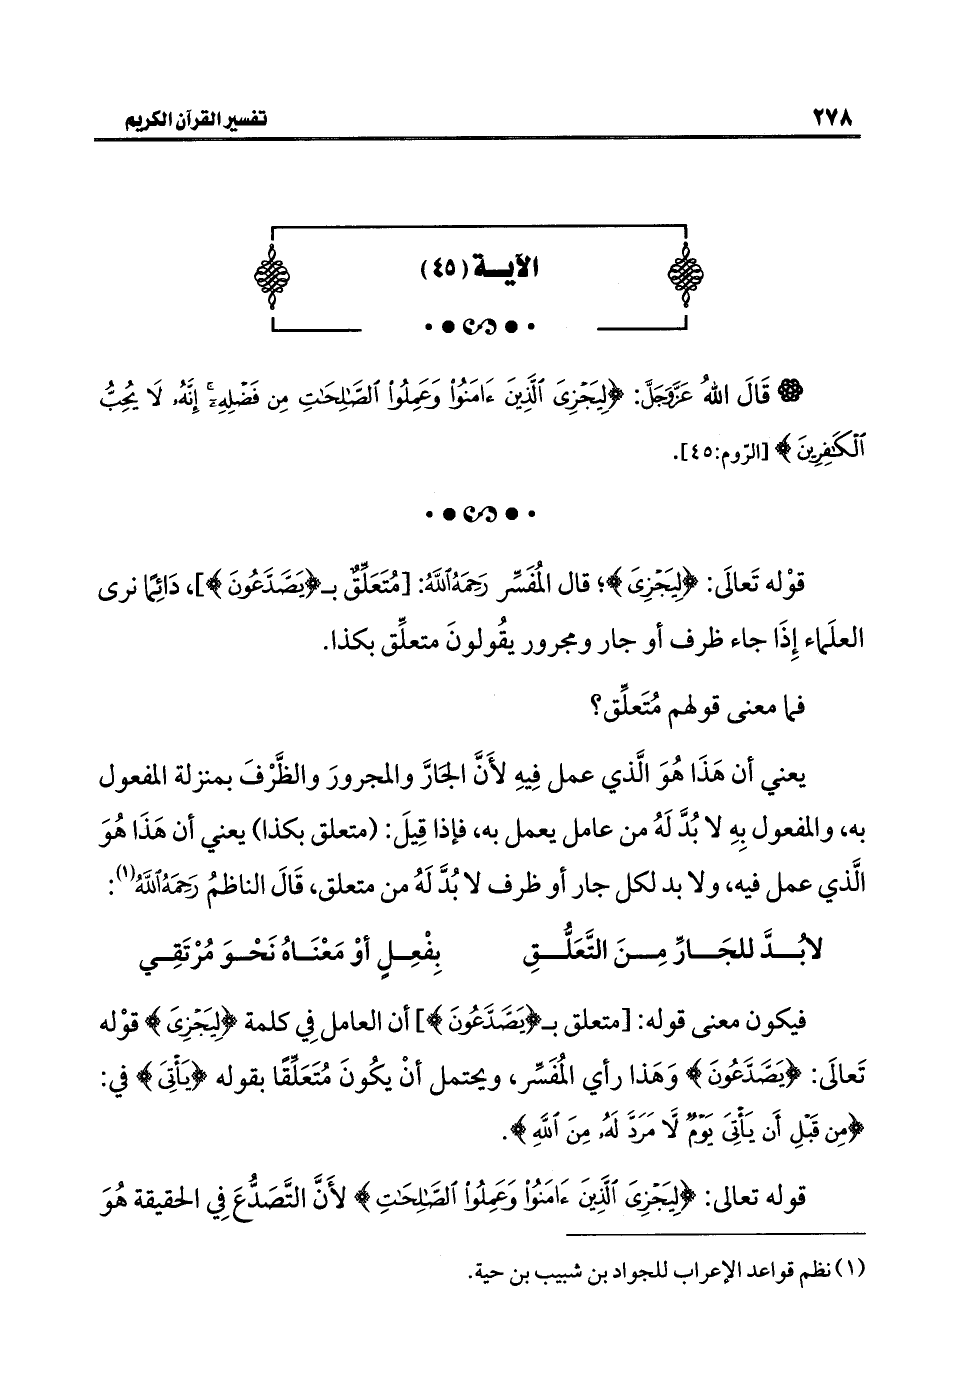 ٢٧٨
تفسير القرآن الكريم
الآيــة (٤٥)
قَالَ اللهُ عَزَّوَجَلَّ: ﴿لِيَجْزِيَ ٱلَّذِينَ ءَامَنُوا۟ وَعَمِلُوا۟ ٱلصَّٰلِحَٰتِ مِن فَضْلِهِۦٓ ۚ إِنَّهُۥ لَا يُحِبُّ
ٱلْكَٰفِرِينَ﴾ [الرّوم:٤٥].
قوْله تَعالَى: ﴿لِيَجْزِيَ﴾؛ قال المُفَسِّر رَحِمَهُ ٱللَّهُ: [مُتَعَلِّقٌ بـ﴿يَصَّدَّعُونَ﴾]، دَائِمًا نرى
العلَماء إِذَا جاء ظرف أو جار ومجرور يقُولونَ متعلِّق بكذا.
فما معنى قولهم مُتَعلِّق؟
يعني أن هَذَا هُوَ الَّذي عمل فِيهِ لأَنَّ الجَارَّ والمجرورَ والظَّرْفَ بمنزلة المفعول
به، والمفعول بِهِ لا بُدَّ لَهُ من عامل يعمل به، فإذا قِيلَ: (متعلق بكذا) يعني أن هَذَا هُوَ
الَّذي عمل فيه، ولا بد لكل جار أو ظرف لا بُدَّ لَهُ من متعلق، قَالَ الناظمُ رَحِمَهُ ٱللَّهُ(١):
لابُـــدَّ للجَـــارِّ مِـــنَ التَّعَلُّـــقِ بِفْعِـــلٍ أوْ مَعْنَـــاهُ نَحْـــوَ مُرْتَقِـــي
فيكون معنى قوله: [متعلق بـ﴿يَصَّدَّعُونَ﴾] أن العامل فِي كلمة ﴿لِيَجْزِيَ﴾ قوْله
تَعالَى: ﴿يَصَّدَّعُونَ﴾ وَهَذا رأي المُفَسِّر، ويحتمل أنْ يكُونَ مُتَعَلِّقًا بقوله ﴿يَأْتِيَ﴾ في:
﴿مِن قَبْلِ أَن يَأْتِيَ يَوْمٌ لَّا مَرَدَّ لَهُۥ مِنَ ٱللَّهِ﴾.
قوله تعالى: ﴿لِيَجْزِيَ ٱلَّذِينَ ءَامَنُوا۟ وَعَمِلُوا۟ ٱلصَّٰلِحَٰتِ﴾ لأَنَّ التَّصَدُّعَ فِي الحقيقة هُوَ
(١) نظم قواعد الإعراب للجواد بن شبيب بن حية.